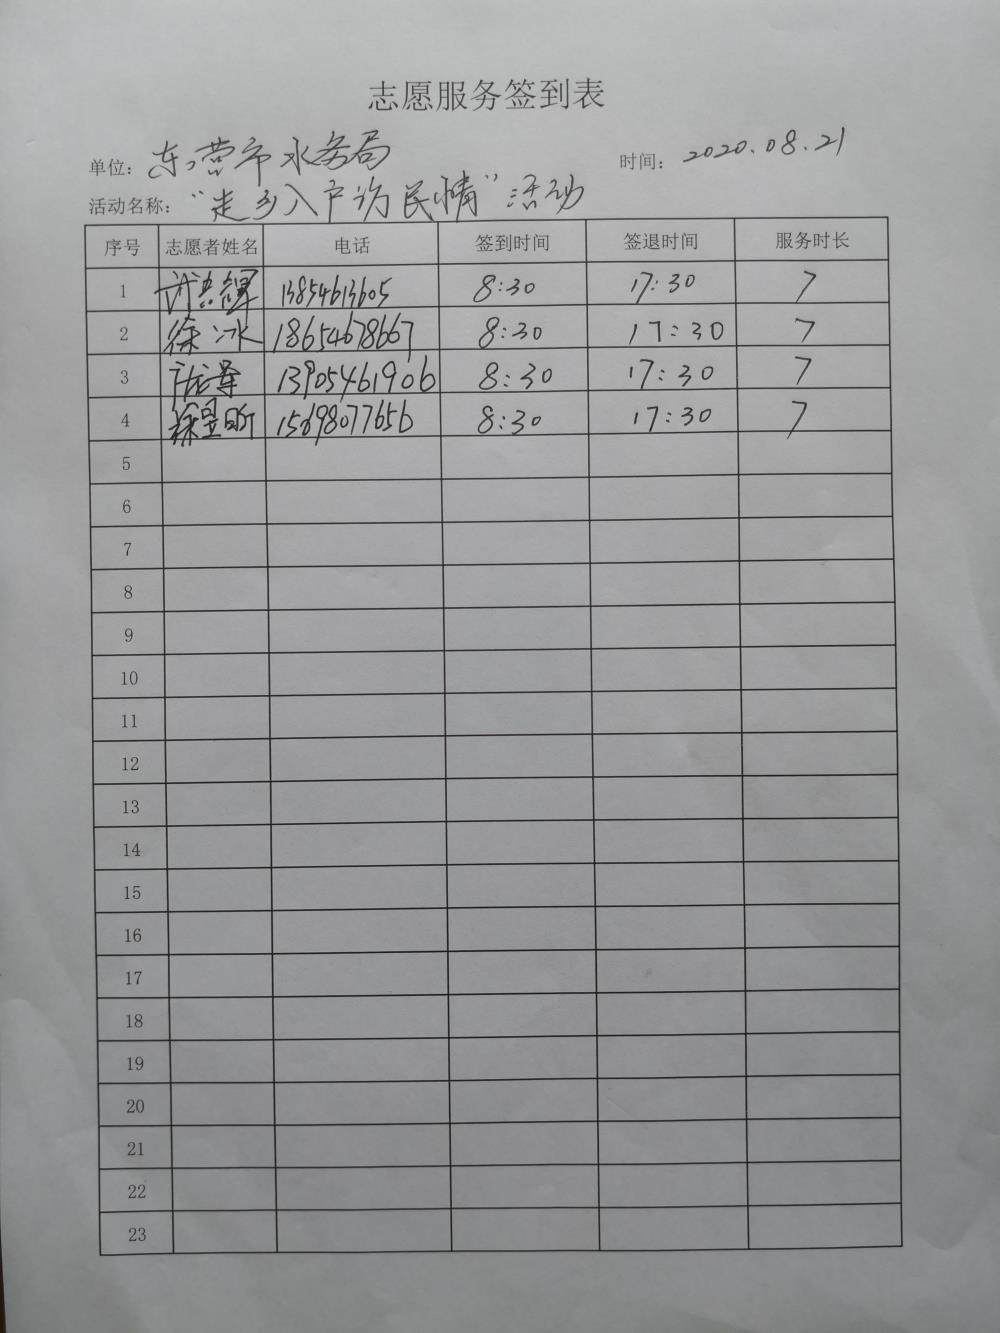 志愿服务签到表
单位：东营市水务局 时间：2020.08.21
活动名称："走乡入户访民情"活动
序号 志愿者姓名 电话 签到时间 签退时间 服务时长
1 13854613605 8:30 17:30 7
2 徐冰 18654678667 8:30 17:30 7
3 13905461906 8:30 17:30 7
4 15698077656 8:30 17:30 7
5
6
7
8
9
10
11
12
13
14
15
16
17
18
19
20
21
22
23